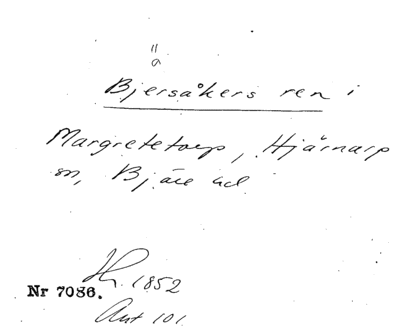 ä
Bjersåkers ren i
Margretetorp, Hjärnarp
sn, Bjäre hd
H. 1852
Nr 7086.
Ant 101